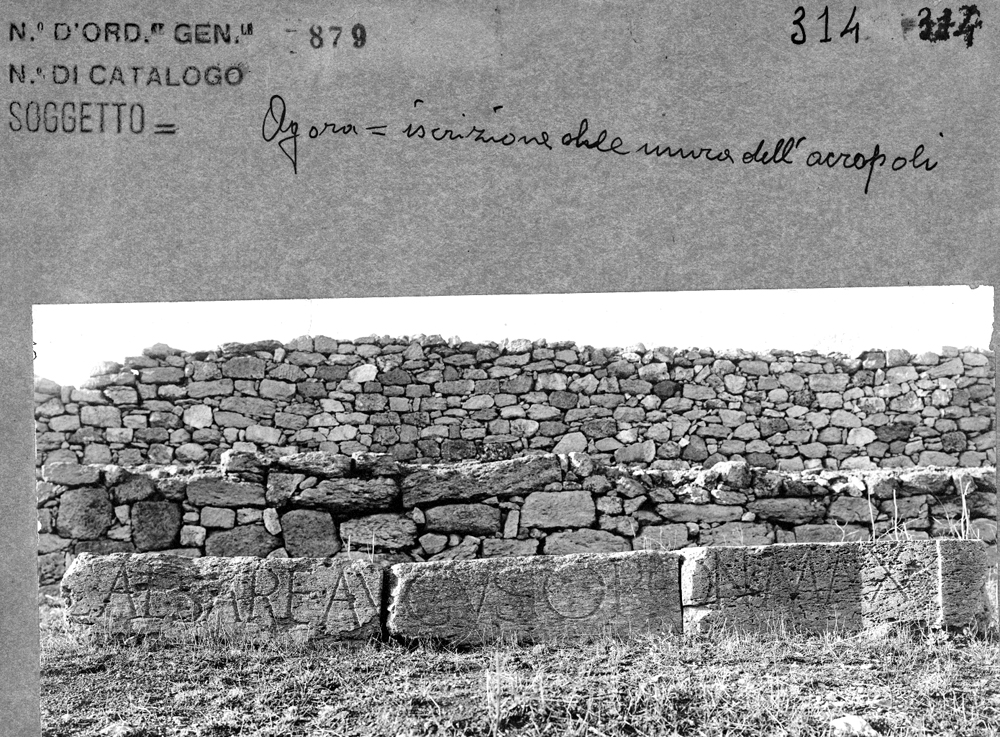 N.º D'ORD.ᵉ GEN.ˡᵉ 879
314
N.º DI CATALOGO
SOGGETTO =
Agora = iscrizione alle mura dell'acropoli
CAESARE AVGVSTO PONT MAX